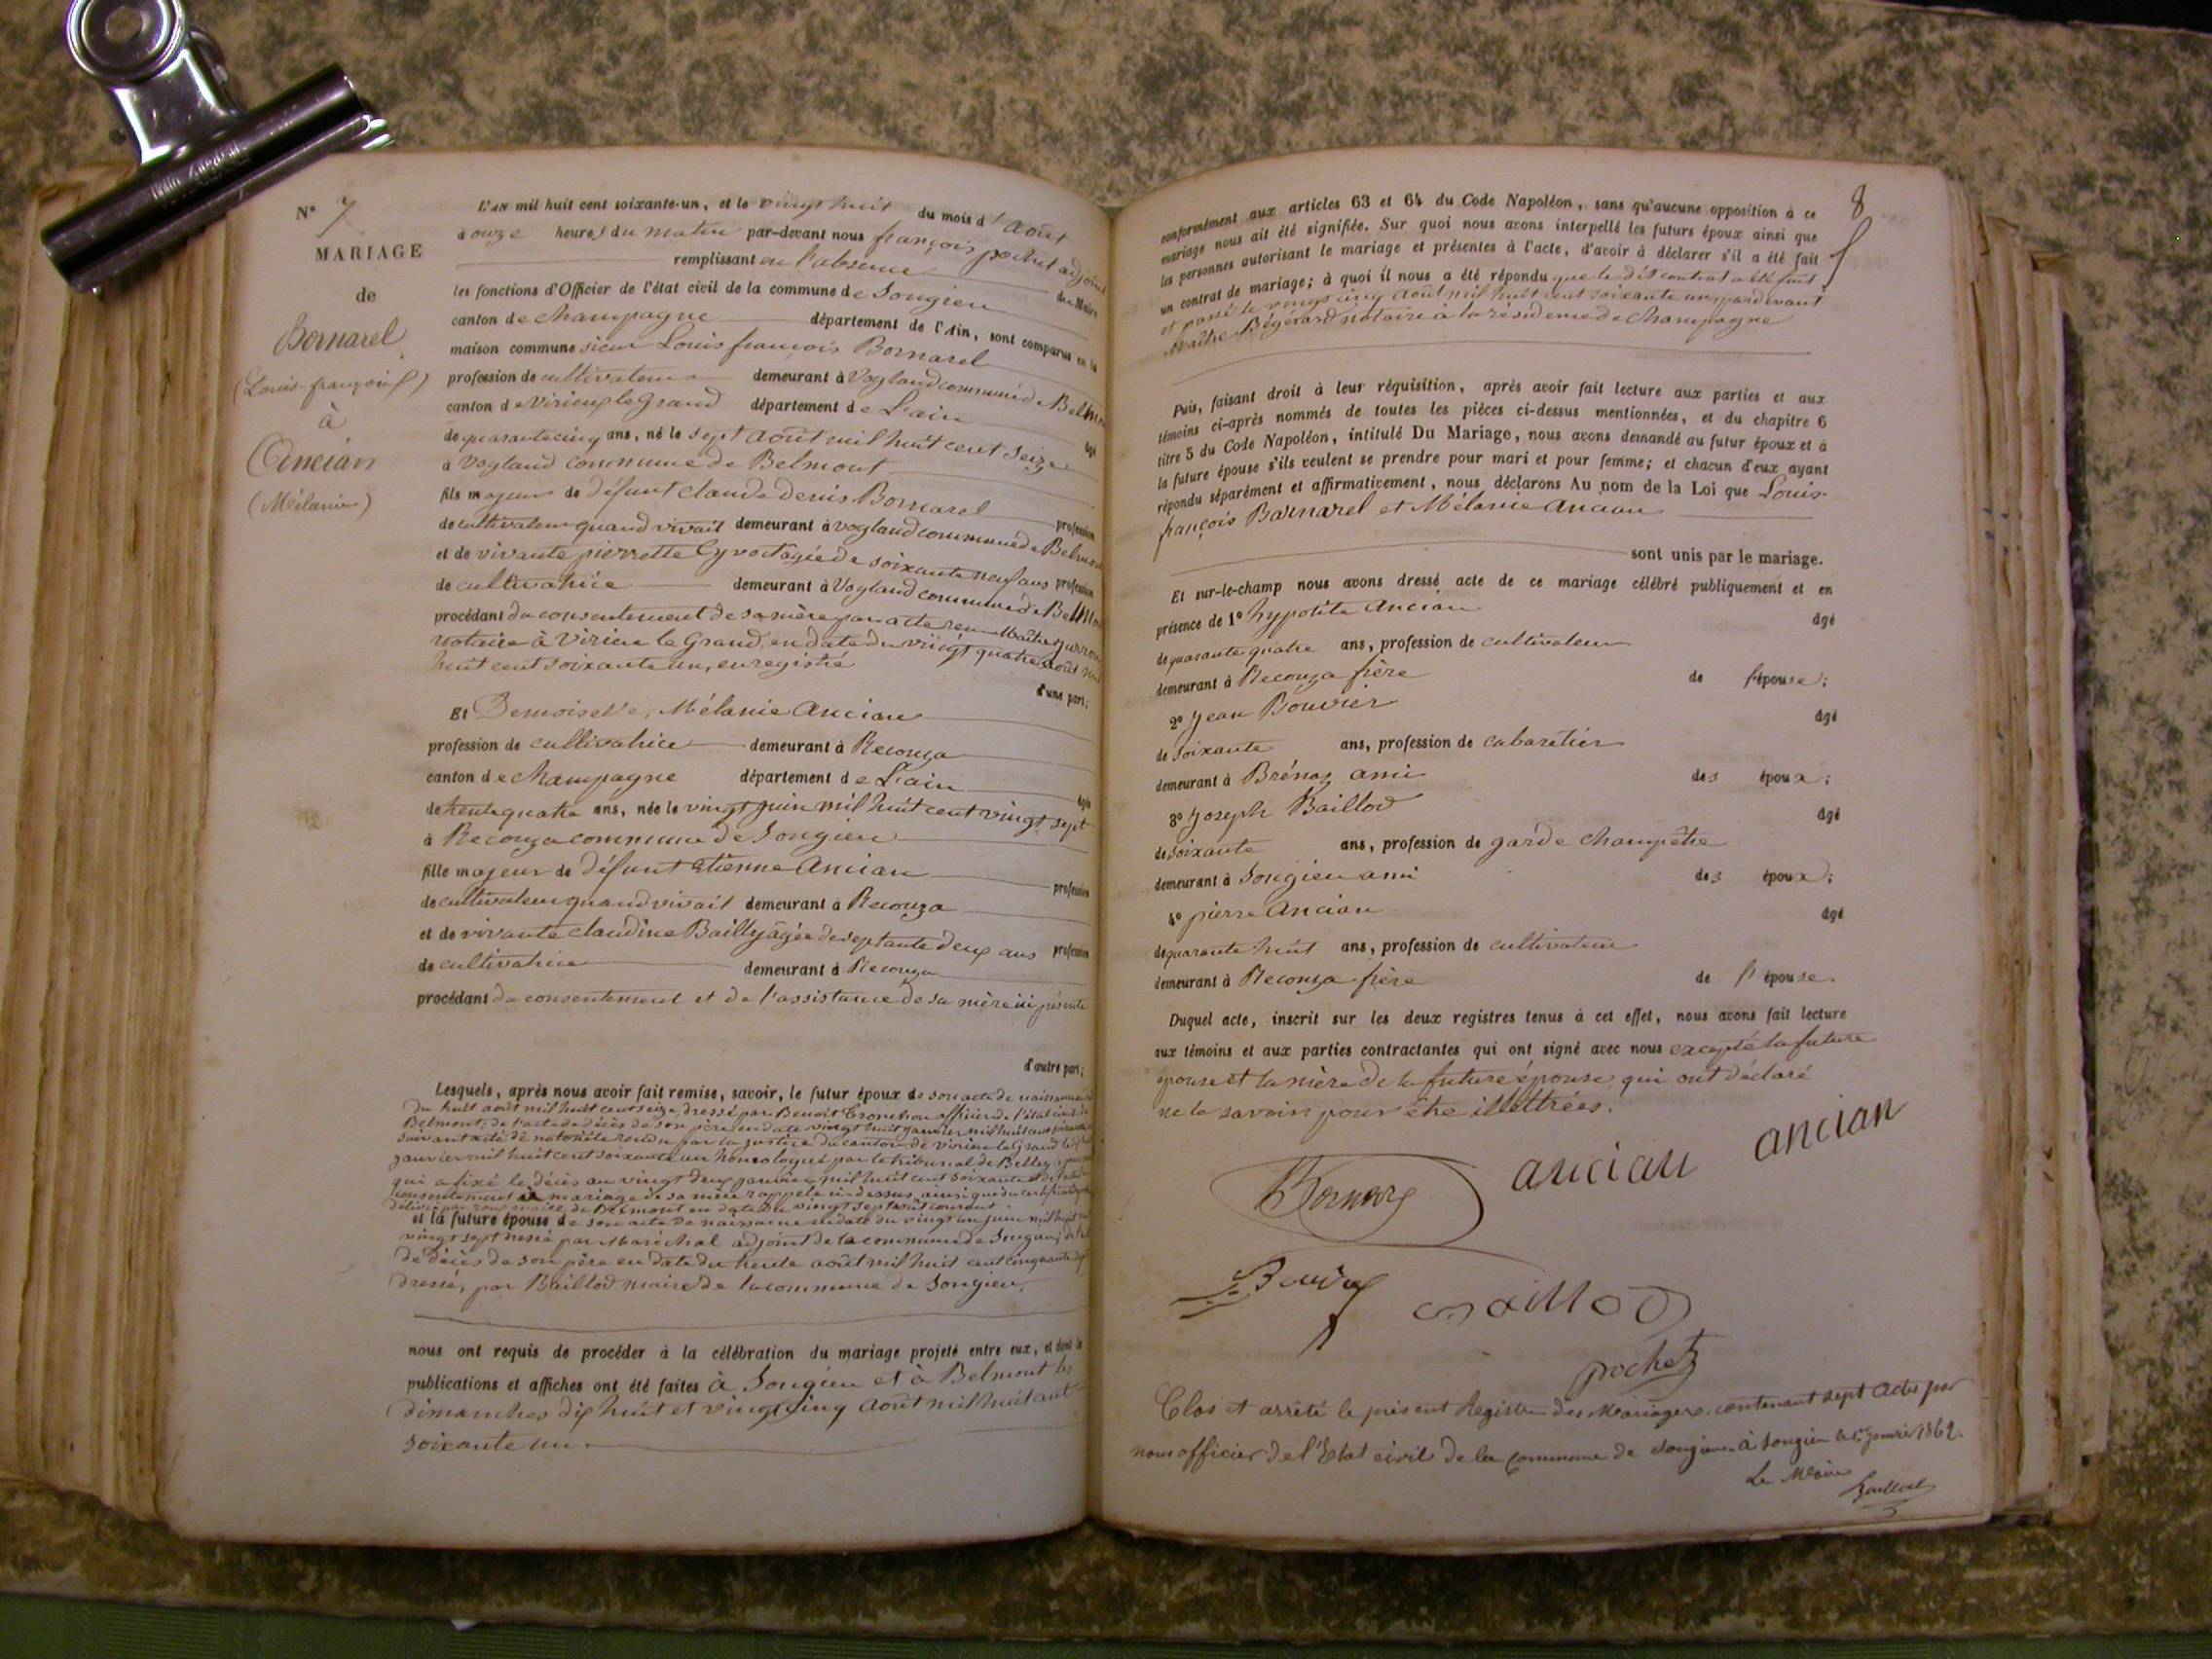 N° 7
MARIAGE
de
Bornarel
(Louis-françois)
à
Ancian
(Mélanie)
L'AN mil huit cent soixante-un, et le vingt huit du mois d'Août
à onze heures du matin par-devant nous françois pochet adjoint
remplissant en l'absence du Maire
les fonctions d'Officier de l'état civil de la commune de Songieu
canton de champagne département de l'Ain, sont comparus en la
maison commune sieur Louis françois Bornarel
profession de cultivateur demeurant à Vogland commune de Belmont
canton de Virieu le Grand département de L'ain âgé
de quarante cinq ans, né le sept Août mil huit cent seize
à Vogland commune de Belmont
fils majeur de défunt claude denis Bornarel profession
de cultivateur quand vivait demeurant à vogland commune de Belmont
et de vivante pierrette agée de soixante neuf ans profession
de cultivatrice demeurant à Vogland commune de Belmont
procédant du consentement de sa mère par acte reçu Maître
notaire à Virieu le Grand, en date du vingt quatre août mil
huit cent soixante un, enregistré
d'une part;
Et Demoiselle, Mélanie Ancian
profession de cultivatrice demeurant à Reconza
canton de champagne département de L'ain âgée
de trente quatre ans, née le vingt juin mil huit cent vingt sept
à Reconza commune de Songieu
fille majeur de défunt Etienne Ancian profession
de cultivateur quand vivait demeurant à Reconza
et de vivante claudine Bailly âgée de septante deux ans profession
de cultivatrice demeurant à Reconza
procédant du consentement et de l'assistance de sa mère ici présente
d'autre part;
Lesquels, après nous avoir fait remise, savoir, le futur époux de son acte de naissance
du huit août mil huit cent seize, dressé par Benoit officier de l'état civil de
Belmont; de l'acte de décès de son père en date vingt huit janvier mil huit cent
suivant acte de notoriété rendu par la justice du canton de virieu le Grand le
janvier mil huit cent soixante un homologué par le tribunal de Belley
qui a fixé le décès au vingt deux janvier mil huit cent soixante et
consentement à mariage de sa mère rappelé ci-dessus, ainsi que du certificat
délivré par maire de Belmont en date du vingt sept août courant.
et la future épouse de son acte de naissance en date du vingt un juin mil huit cent
vingt sept dressé par Maréchal adjoint de la commune de Songieu; de l'acte
de décès de son père en date du trente août mil huit cent cinquante
dressé, par Baillod maire de la commune de Songieu,
nous ont requis de procéder à la célébration du mariage projeté entre eux, et dont les
publications et affiches ont été faites à Songieu et à Belmont les
dimanches dix huit et vingt cinq Août mil huit cent
soixante un.
8
conformément aux articles 63 et 64 du Code Napoléon, sans qu'aucune opposition à ce
mariage nous ait été signifiée. Sur quoi nous avons interpellé les futurs époux ainsi que
les personnes autorisant le mariage et présentes à l'acte, d'avoir à déclarer s'il a été fait
un contrat de mariage; à quoi il nous a été répondu que le dit contrat a été fait
et passé le vingt cinq Août mil huit cent soixante un, pardevant
Maître Bégérard notaire à la résidence de champagne
Puis, faisant droit à leur réquisition, après avoir fait lecture aux parties et aux
témoins ci-après nommés de toutes les pièces ci-dessus mentionnées, et du chapitre 6
titre 5 du Code Napoléon, intitulé Du Mariage, nous avons demandé au futur époux et à
la future épouse s'ils veulent se prendre pour mari et pour femme; et chacun d'eux ayant
répondu séparément et affirmativement, nous déclarons Au nom de la Loi que Louis
françois Bornarel et Mélanie Ancian
sont unis par le mariage.
Et sur-le-champ nous avons dressé acte de ce mariage célébré publiquement et en
présence de 1° hypolite Ancian âgé
de quarante quatre ans, profession de cultivateur
demeurant à Reconza frère de l'épouse;
2° Jean Bouvier âgé
de soixante ans, profession de cabaretier
demeurant à Brénaz ami des époux;
3° Joseph Baillod âgé
de soixante ans, profession de garde champêtre
demeurant à Songieu ami des époux;
4° pierre Ancian âgé
de quarante huit ans, profession de cultivateur
demeurant à Reconza frère de l'épouse.
Duquel acte, inscrit sur les deux registres tenus à cet effet, nous avons fait lecture
aux témoins et aux parties contractantes qui ont signé avec nous excepté la future
épouse et la mère de la future épouse, qui ont déclaré
ne le savoir pour être illettrées.
ancian ancian
Baillod
pochet
Clos et arrêté le présent Registre des Mariages, contenant sept actes par
nous officier de l'Etat civil de la Commune de Songieu à Songieu le 1er janvier 1862.
Le Maire
Baillod